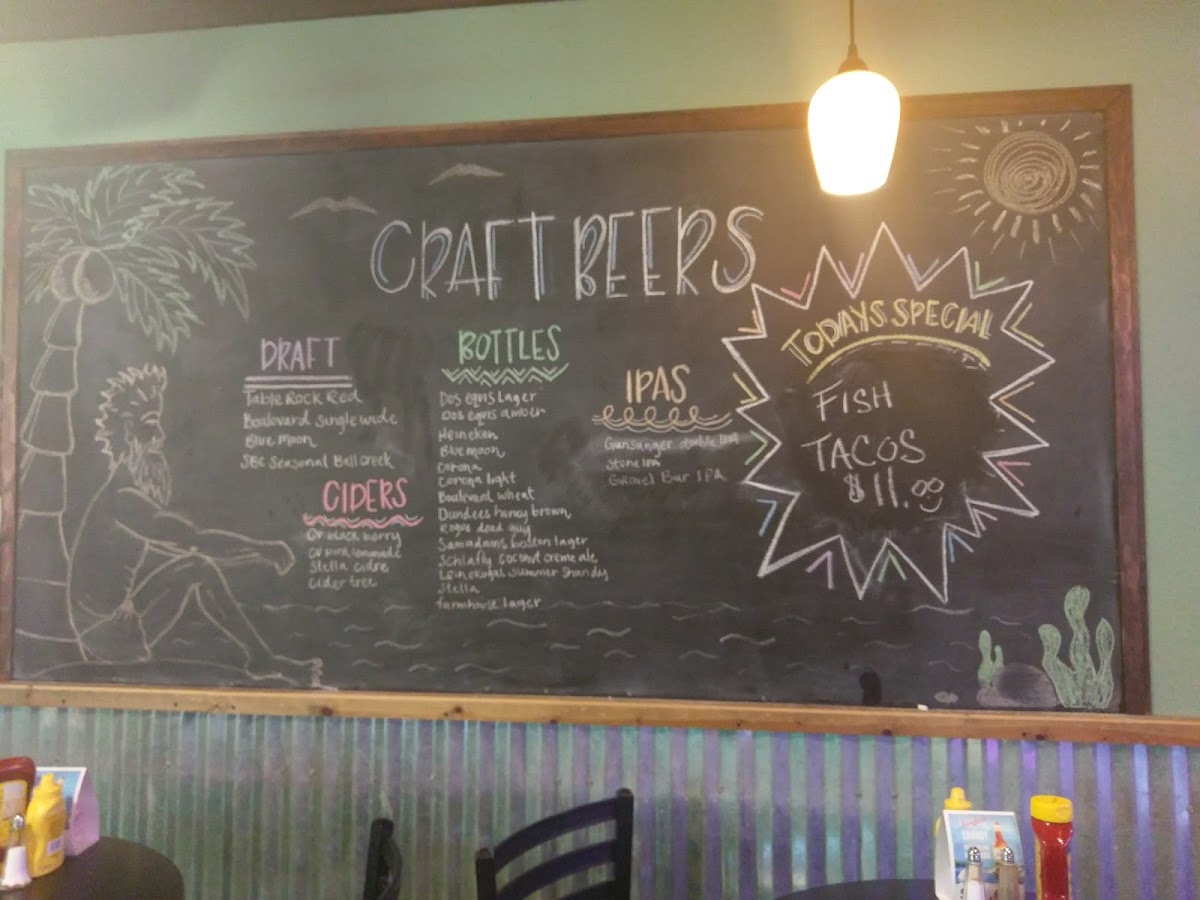 CRAFT BEERS
DRAFT
Table Rock Red
Boulevard single wide
Blue Moon
SBC Seasonal Bull Creek
CIDERS
black berry
Stella cidre
cider tree
BOTTLES
Dos equis Lager
Dos equis amber
Heineken
Blue moon
corona
corona light
Boulevard wheat
Dundees honey brown
Rogue dead guy
Samadams boston lager
Schlafly coconut creme ale
Summer Shandy
Stella
farmhouse lager
IPAS
double IPA
Stone IPA
Gravel Bar IPA
TODAYS SPECIAL
FISH
TACOS
$11.00